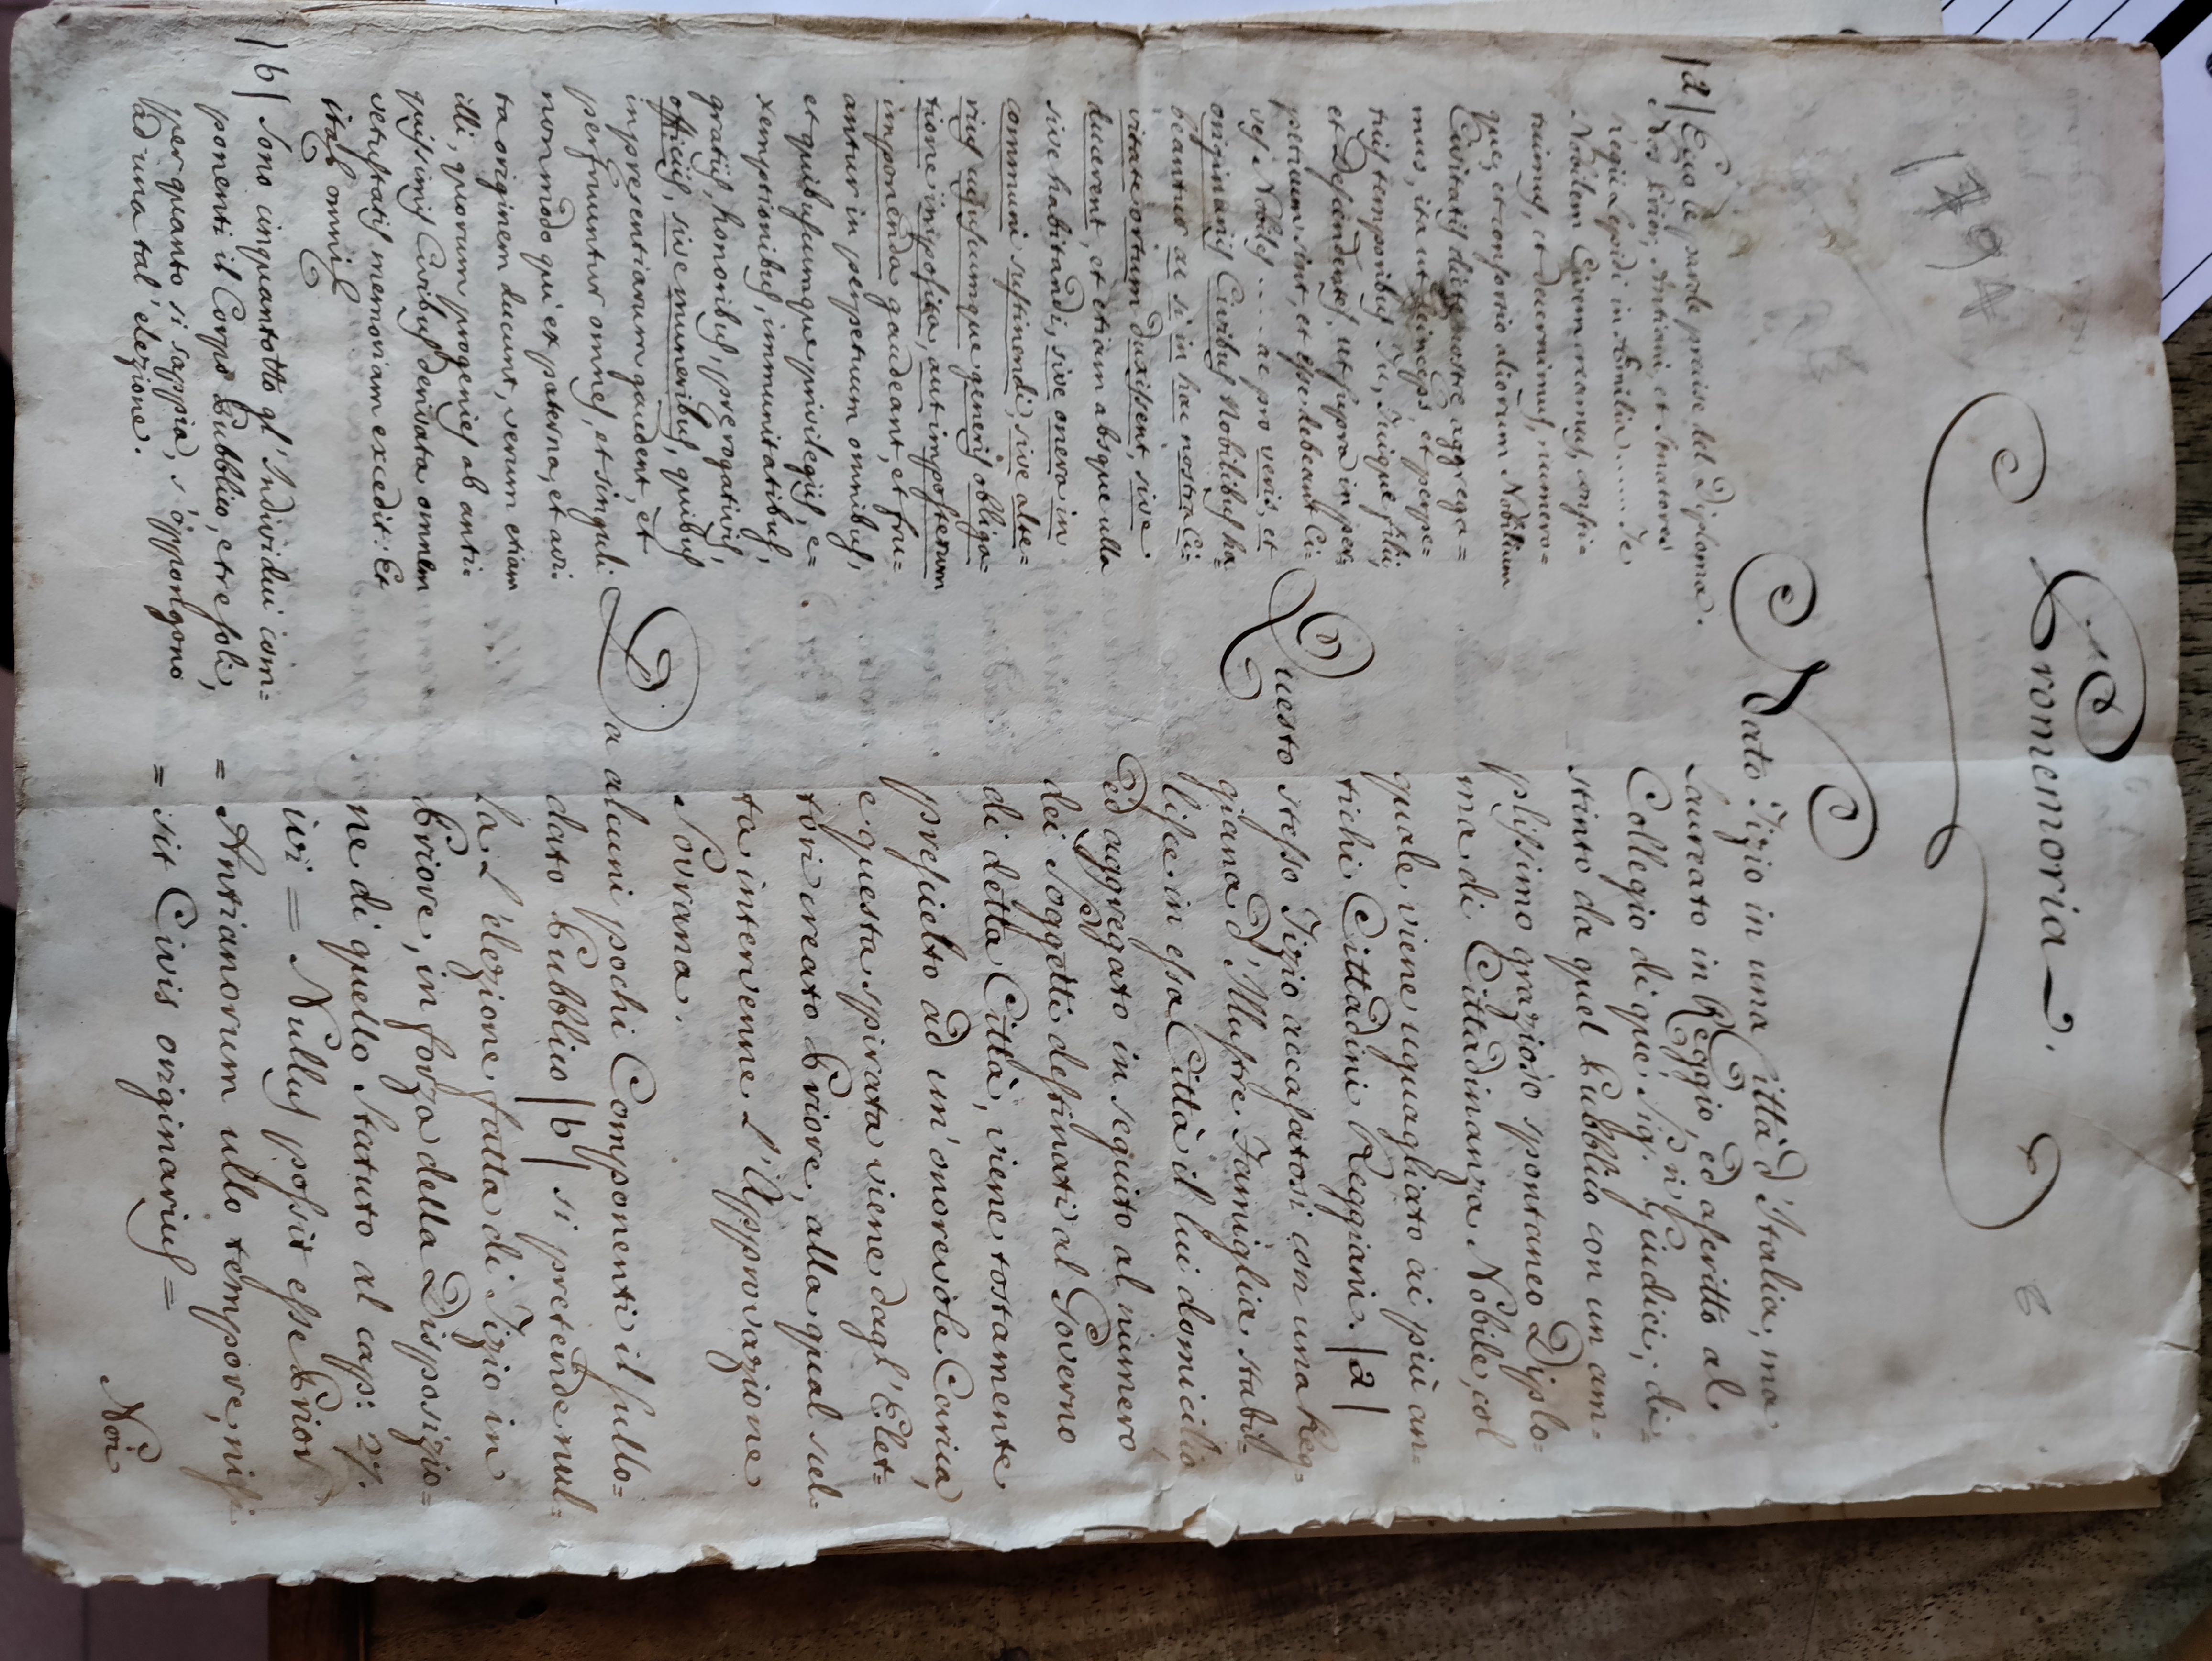 Promemoria.
Nato Tizio in una Città d'Italia, ma
Laureato in Reggio, ed ascritto al
Collegio di que' Sig.ri Giudici, di=
stinto da quel Pubblico con un am=
plissimo grazioso spontaneo Diplo=
ma di Cittadinanza Nobile, col
quale viene uguagliato ai più an=
tichi Cittadini Reggiani. |a|
Questo stesso Tizio accasatosi con una Reg=
giana d'Illustre Famiglia stabil=
lisce in essa Città il lui domicilio,
ed aggregato in seguito al numero
dei soggetti destinati al Governo
di detta Città, viene tostamente
prescielto ad un'onorevole Carica,
e questa spirata viene dagl'Elet=
tori creato Priore, alla qual scel=
ta intervenne l'Approvazione
Sovrana.
Da alcuni pochi Componenti il sullo=
dato Pubblico |b| si pretende nul=
la l'elezione fatta di Tizio in
Priore, in forza della Disposizio=
ne di quello Statuto al cap: 27.
ivi = Nullus possit esse Prior
= Antianorum ullo tempore, nisi
= sit Civis originarius =
Noi
|a| Ecco le parole precise del Diploma.
Nos Prior, Antiani, et Senatores
Regii Lepidi in Æmilia ..... Te
Nobilem Civem creamus, consti=
tuimus, et decernimus, numero=
que, et consortio aliorum Nobilium
Civitatis dictæ nostræ aggrega=
mus, ita ut deinceps, et perpe=
tuis temporibus Tu, Tuique filii,
et Descendentes, ut supra in per=
petuum sint, et esse debeant Ci=
ves Nobiles ..... ac pro veris, et
originariis Civibus Nobilibus ha=
beantur ac si in hac nostra Ci=
vitate ortum duxissent, sive
ducerent, et etiam absque ulla
sive habitandi, sive onera in
communi sustinendi, sive alte=
rius cujuscumque generis obliga=
tione imposita, aut imposterum
imponenda gaudeant, et fru=
antur in perpetuum omnibus,
et quibuscumque privilegiis, e=
xemptionibus, immunitatibus,
gratiis, honoribus, prerogativis,
officiis, sive muneribus, quibus
inpresentiarum gaudent, et
perfruuntur omnes, et singuli
non modo qui ex paterna, et avi=
ta originem ducunt, verum etiam
illi, quorum progenies ab anti=
quissimis Civibus derivata omnem
vetustatis memoriam excedit: Et
ita omni
|b| Sono cinquantotto gl'Individui com=
ponenti il Corpo Pubblico, e tre soli,
per quanto si sappia, s'oppongono
ad una tal' elezione.